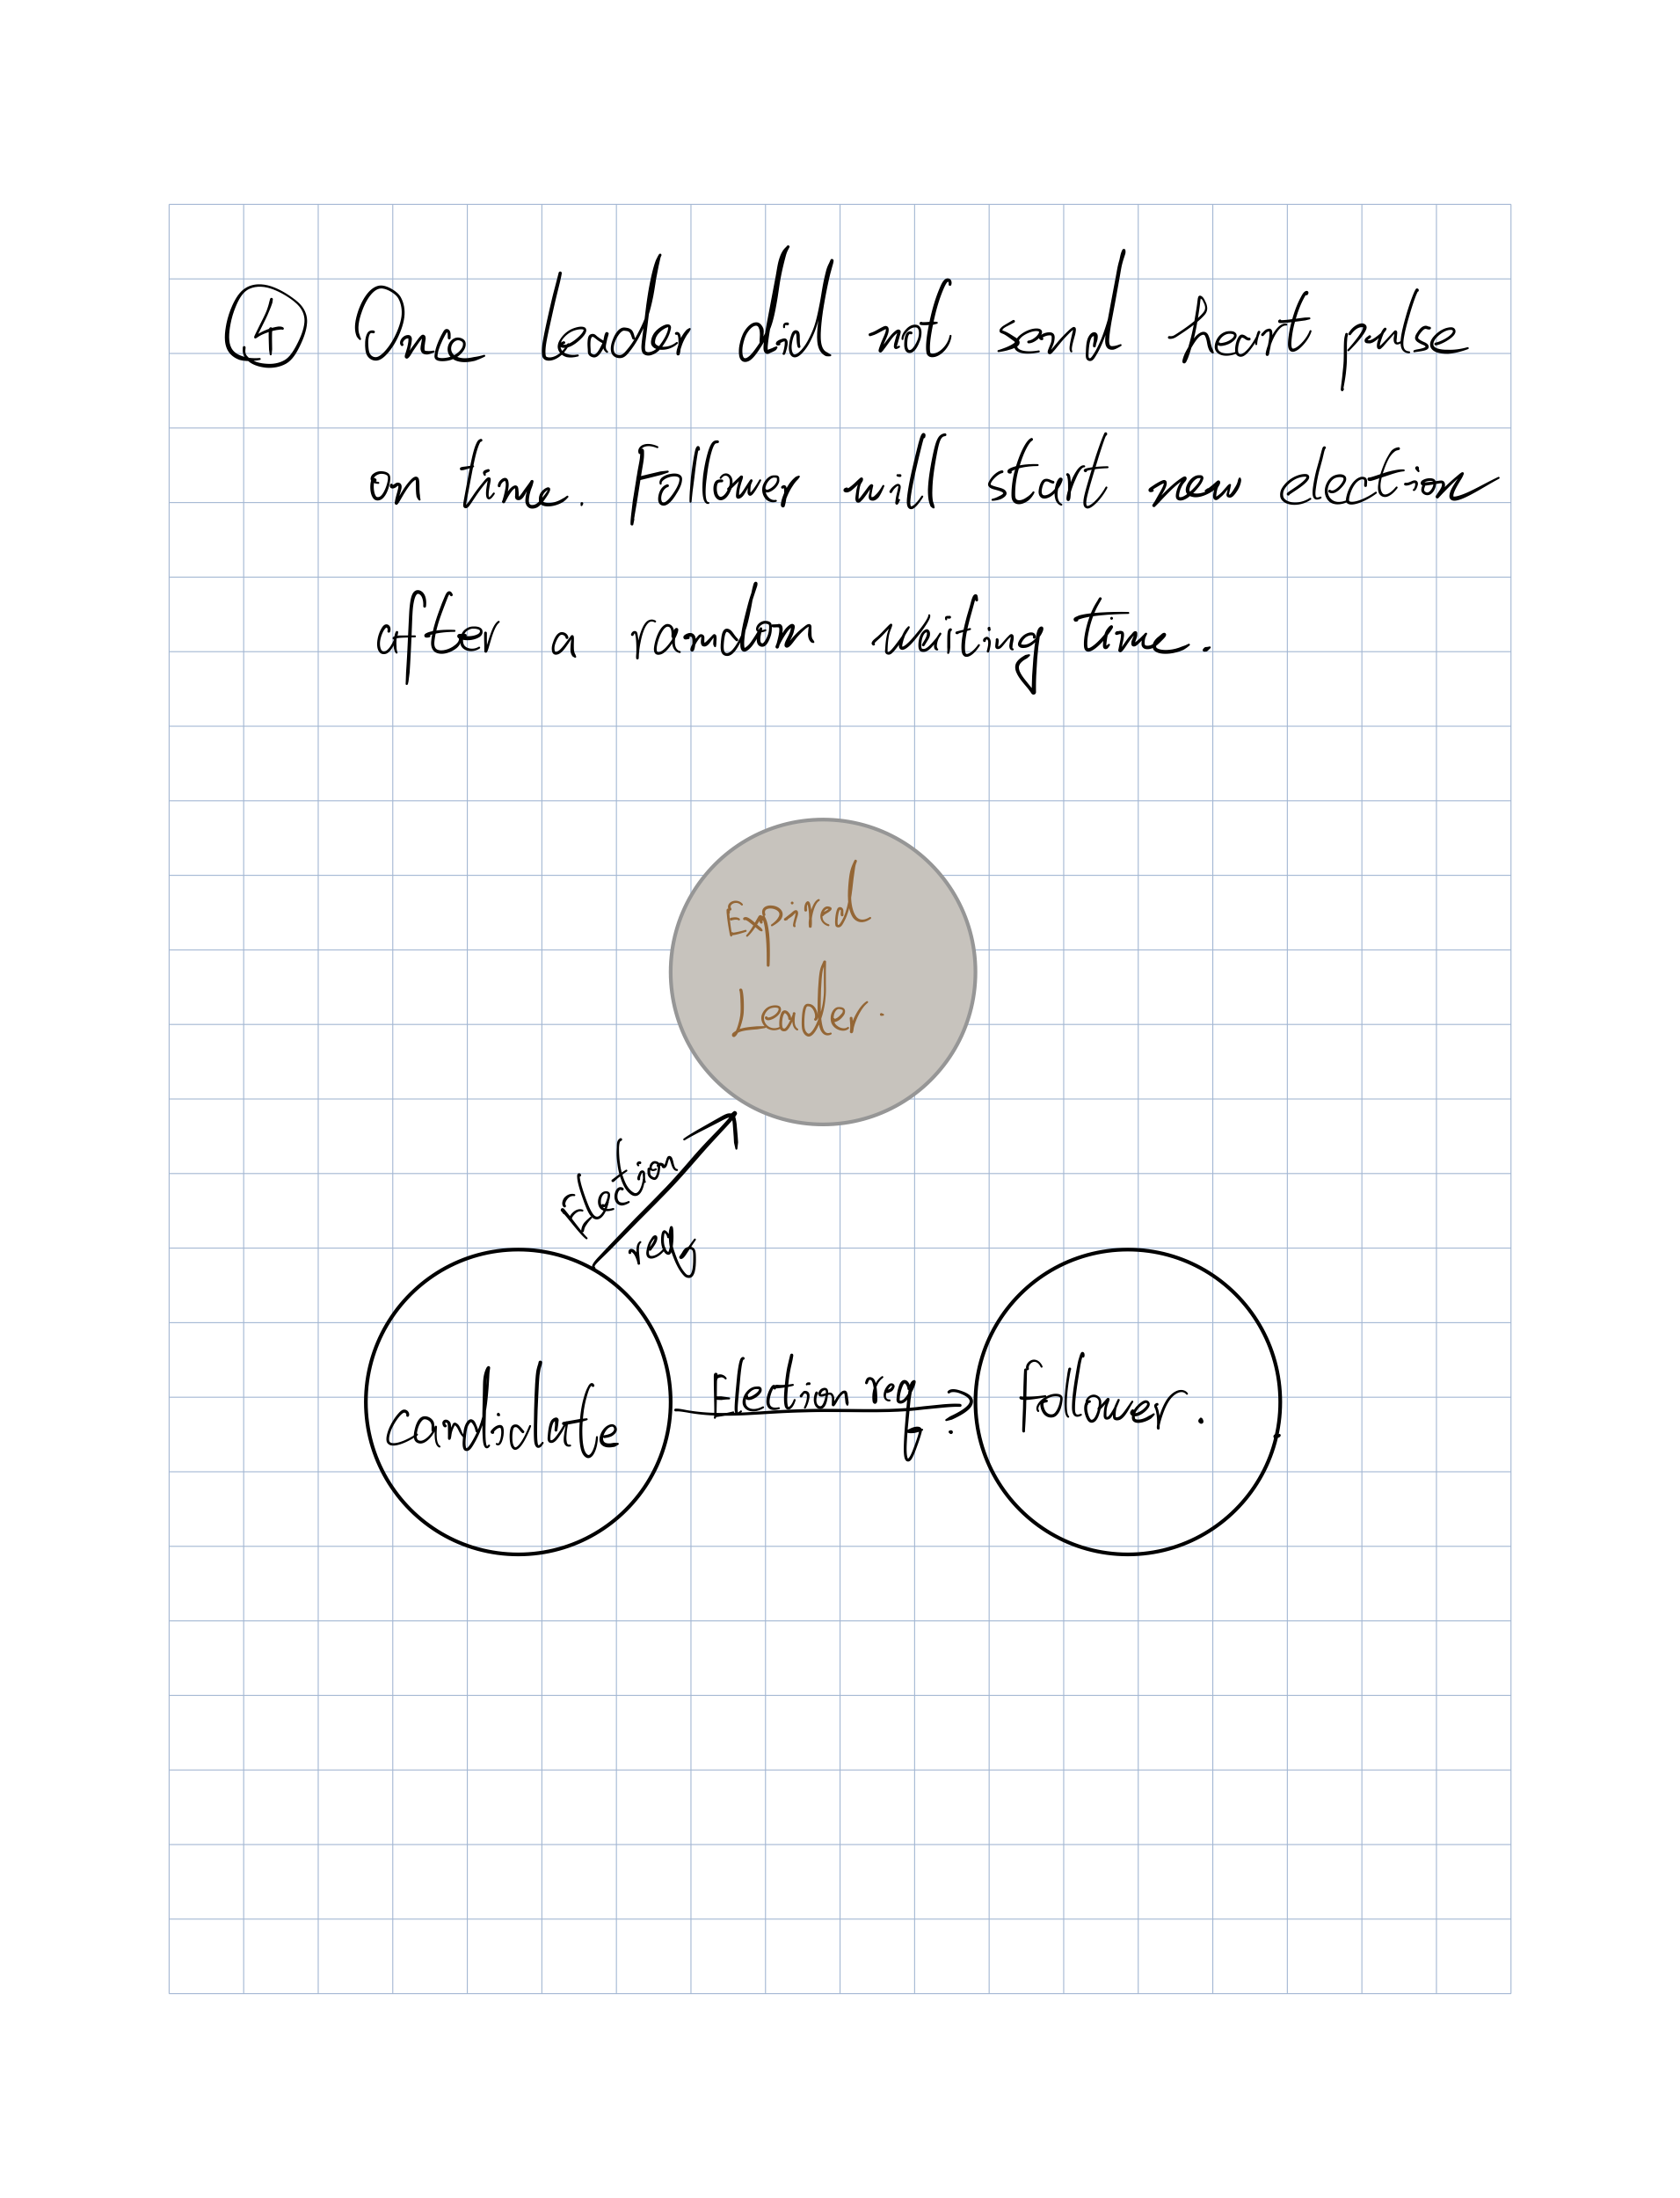 ④ One leader did not send heart pulse
on time. Follower will start new election
after a random waiting time.
Expired
Leader.
Election
req
Candidate
Election req.
follower.